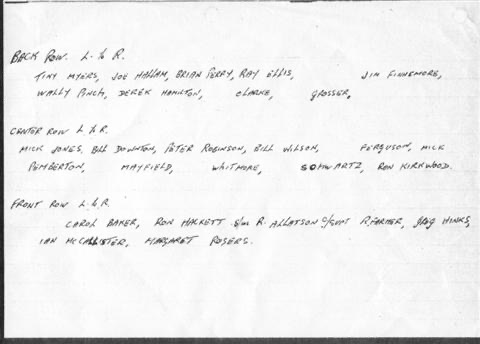 BACK ROW. L. to R.
TINY MYERS, JOE HALLAM, BRIAN PERRY, RAY ELLIS, JIM FINNEMORE,
WALLY PINCH, DEREK HAMILTON, CLARKE, GROSSER.
CENTER ROW L to R.
MICK JONES, BILL DOWNTON, PETER ROBINSON, BILL WILSON, FERGUSON, MICK
PEMBERTON, MAYFIELD, WHITMORE, SCHWARTZ, RON KIRKWOOD.
FRONT ROW L to R.
CAROL BAKER, RON HACKETT S/M R. ALLATSON C/SUPT R. FARMER, GREG HINKS,
IAN McCALLISTER, MARGARET ROGERS.